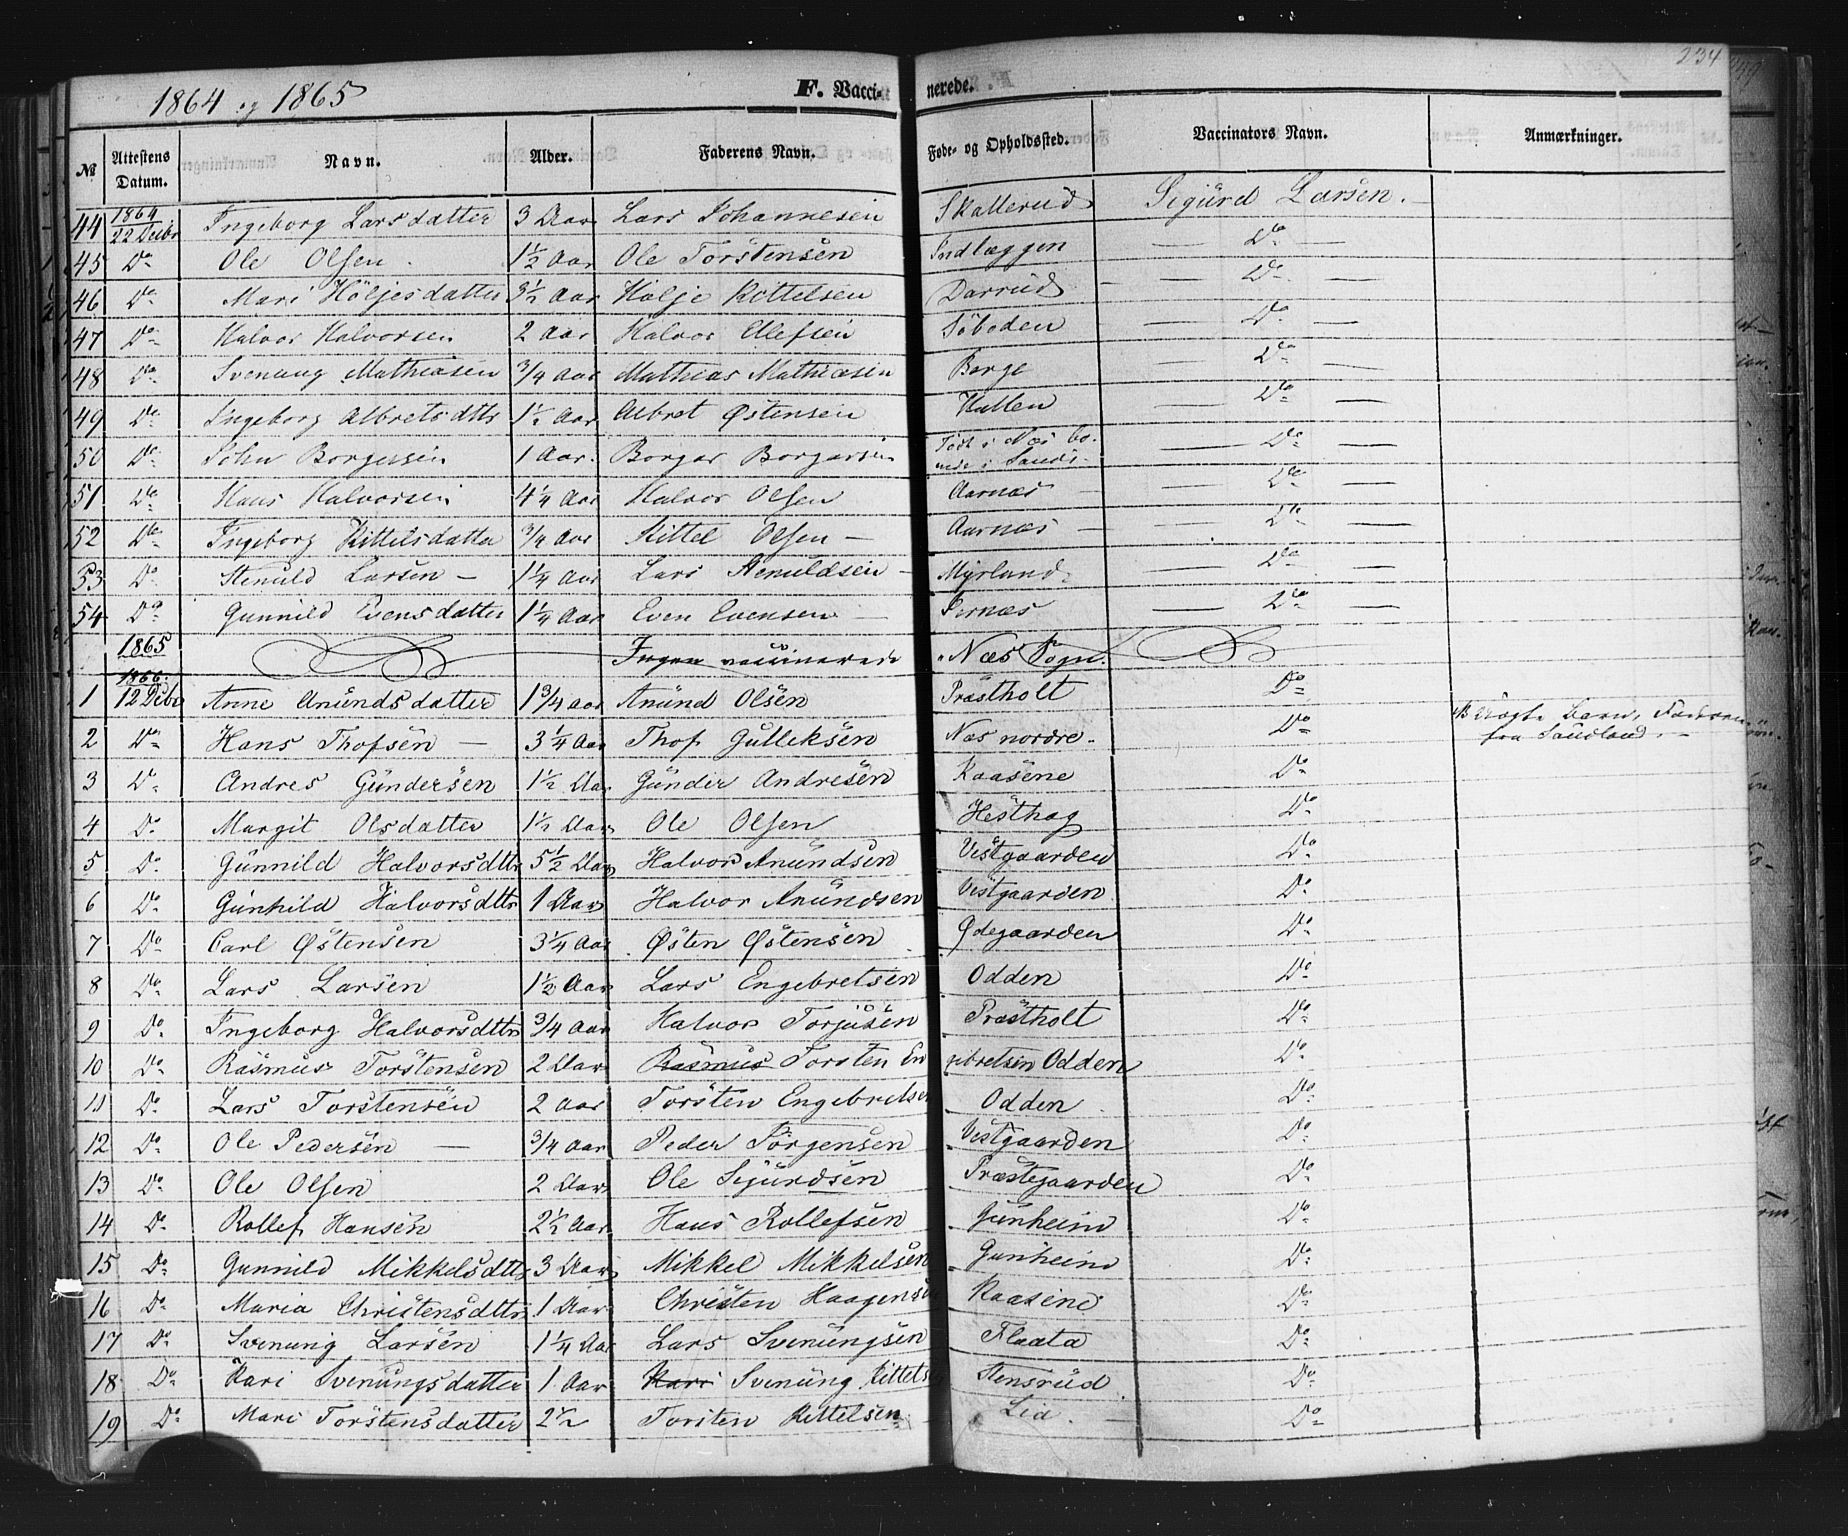 234
1864 og 1865 F. Vaccinerede.
№ Attestens Datum. Navn. Alder. Faderens Navn. Føde- og Opholdssted. Vaccinators Navn. Anmærkninger.
44 1864 22 Decbr Ingeborg Larsdatter 3 Aar Lars Johannesen Skallerud Sigurd Larsen.
45 Do Ole Olsen 1½ Aar Ole Torstensen Indlæggen — Do —
46 Do Mari Höljesdatter 3½ Aar Hölje Kittelsen Darrud — Do —
47 Do Halvor Halvorsen 2 Aar Halvor Olefsen Söboden — Do —
48 Do Svenung Mathiasen 3/4 Aar Mathias Mathiasen Borge — Do —
49 Do Ingeborg Albretsdttr 1½ Aar Albret Østensen Hullen — Do —
50 Do John Borgersen 1 Aar. Borgar Borgersen Født i Næs bo- ende i Sauds. — Do —
51 Do Hans Halvorsen 4¼ Aar Halvor Olsen Aarnæs — Do —
52 Do Ingeborg Kittelsdatter 3/4 Aar Kittel Olsen — Aarnæs — Do —
53 Do Stenuld Larsen — 1¼ Aar Lars Stenuldsen — Myrland — Do —
54 Do Gunnild Evensdatter 1¼ Aar Even Evensen — Sernæs — Do —
1865 Ingen vaccinerede i Næs Sogn.
1 1866: 12 Decbr Anne Anundsdatter 1 3/4 Aar Anund Olsen Præstholt Do
2 Do Hans Thofsen — 3¼ Aar Thof Gulleksen Næs nordre. Do Uægte Barn, Faderen fra Saudland. —
3 Do Andres Gundersen 1½ Aar Gunder Andresen Kaasene Do
4 Do Margit Olsdatter 1½ Aar Ole Olsen Hesthag Do
5 Do Gunnild Halvorsdttr 5½ Aar Halvor Anundsen Vestgaarden Do
6 Do Gunhild Halvorsdttr 1 Aar Halvor Anundsen Vestgaarden Do
7 Do Carl Østensen 3¼ Aar Østen Østensen Ødegaarden Do
8 Do Lars Larsen 1½ Aar Lars Engebretsen Odden Do
9 Do Ingeborg Halvorsdttr 3/4 Aar Halvor Torjusen Præstholt Do
10 Do Rasmus Torstensen 2 Aar Rasmus Torsten Engebretsen Odden Do
11 Do Lars Torstensen 2 Aar Torsten Engebretsen Odden Do
12 Do Ole Pedersen — 3/4 Aar Peder Jörgensen Vestgaarden Do
13 Do Ole Olsen 2 Aar Ole Sigurdsen Præstegaarden Do
14 Do Rollef Hansen 2½ Aar Hans Rollefsen Gunheim Do
15 Do Gunnild Mikkelsdttr 3 Aar Mikkel Mikkelsen Gunheim Do
16 Do Maria Christensdttr 1 Aar Christen Haagensen Kaasene Do
17 Do Svenung Larsen 1¼ Aar Lars Svenungsen Flaata Do
18 Do Kari Svenungsdatter 1 Aar Kari Svenung Kittels Stensrud Do
19 Do Mari Torstensdatter 2½ Torsten Kittelsen Lia. Do